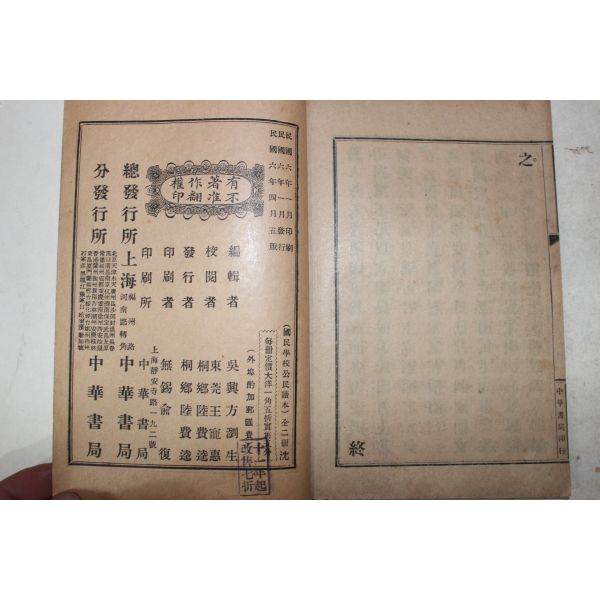 之
終
中華書局印行
民國六年一月印刷
民國六年一月發行
民國六年四月五版
有著作權
不准翻印
(國民學校公民讀本)全二册
每册定價大洋一角五折實
(外埠酌加郵匯費
十一年起
改售七折
編輯者 吳興方瀏生
校閱者 東莞王寵惠
桐鄉陸費逵
發行者 桐鄉陸費逵
印刷者 無錫俞復
印刷所 上海靜安寺路一九二號 中華書局
總發行所 上海 福州路 河南路轉角 中華書局
分發行所 中華書局